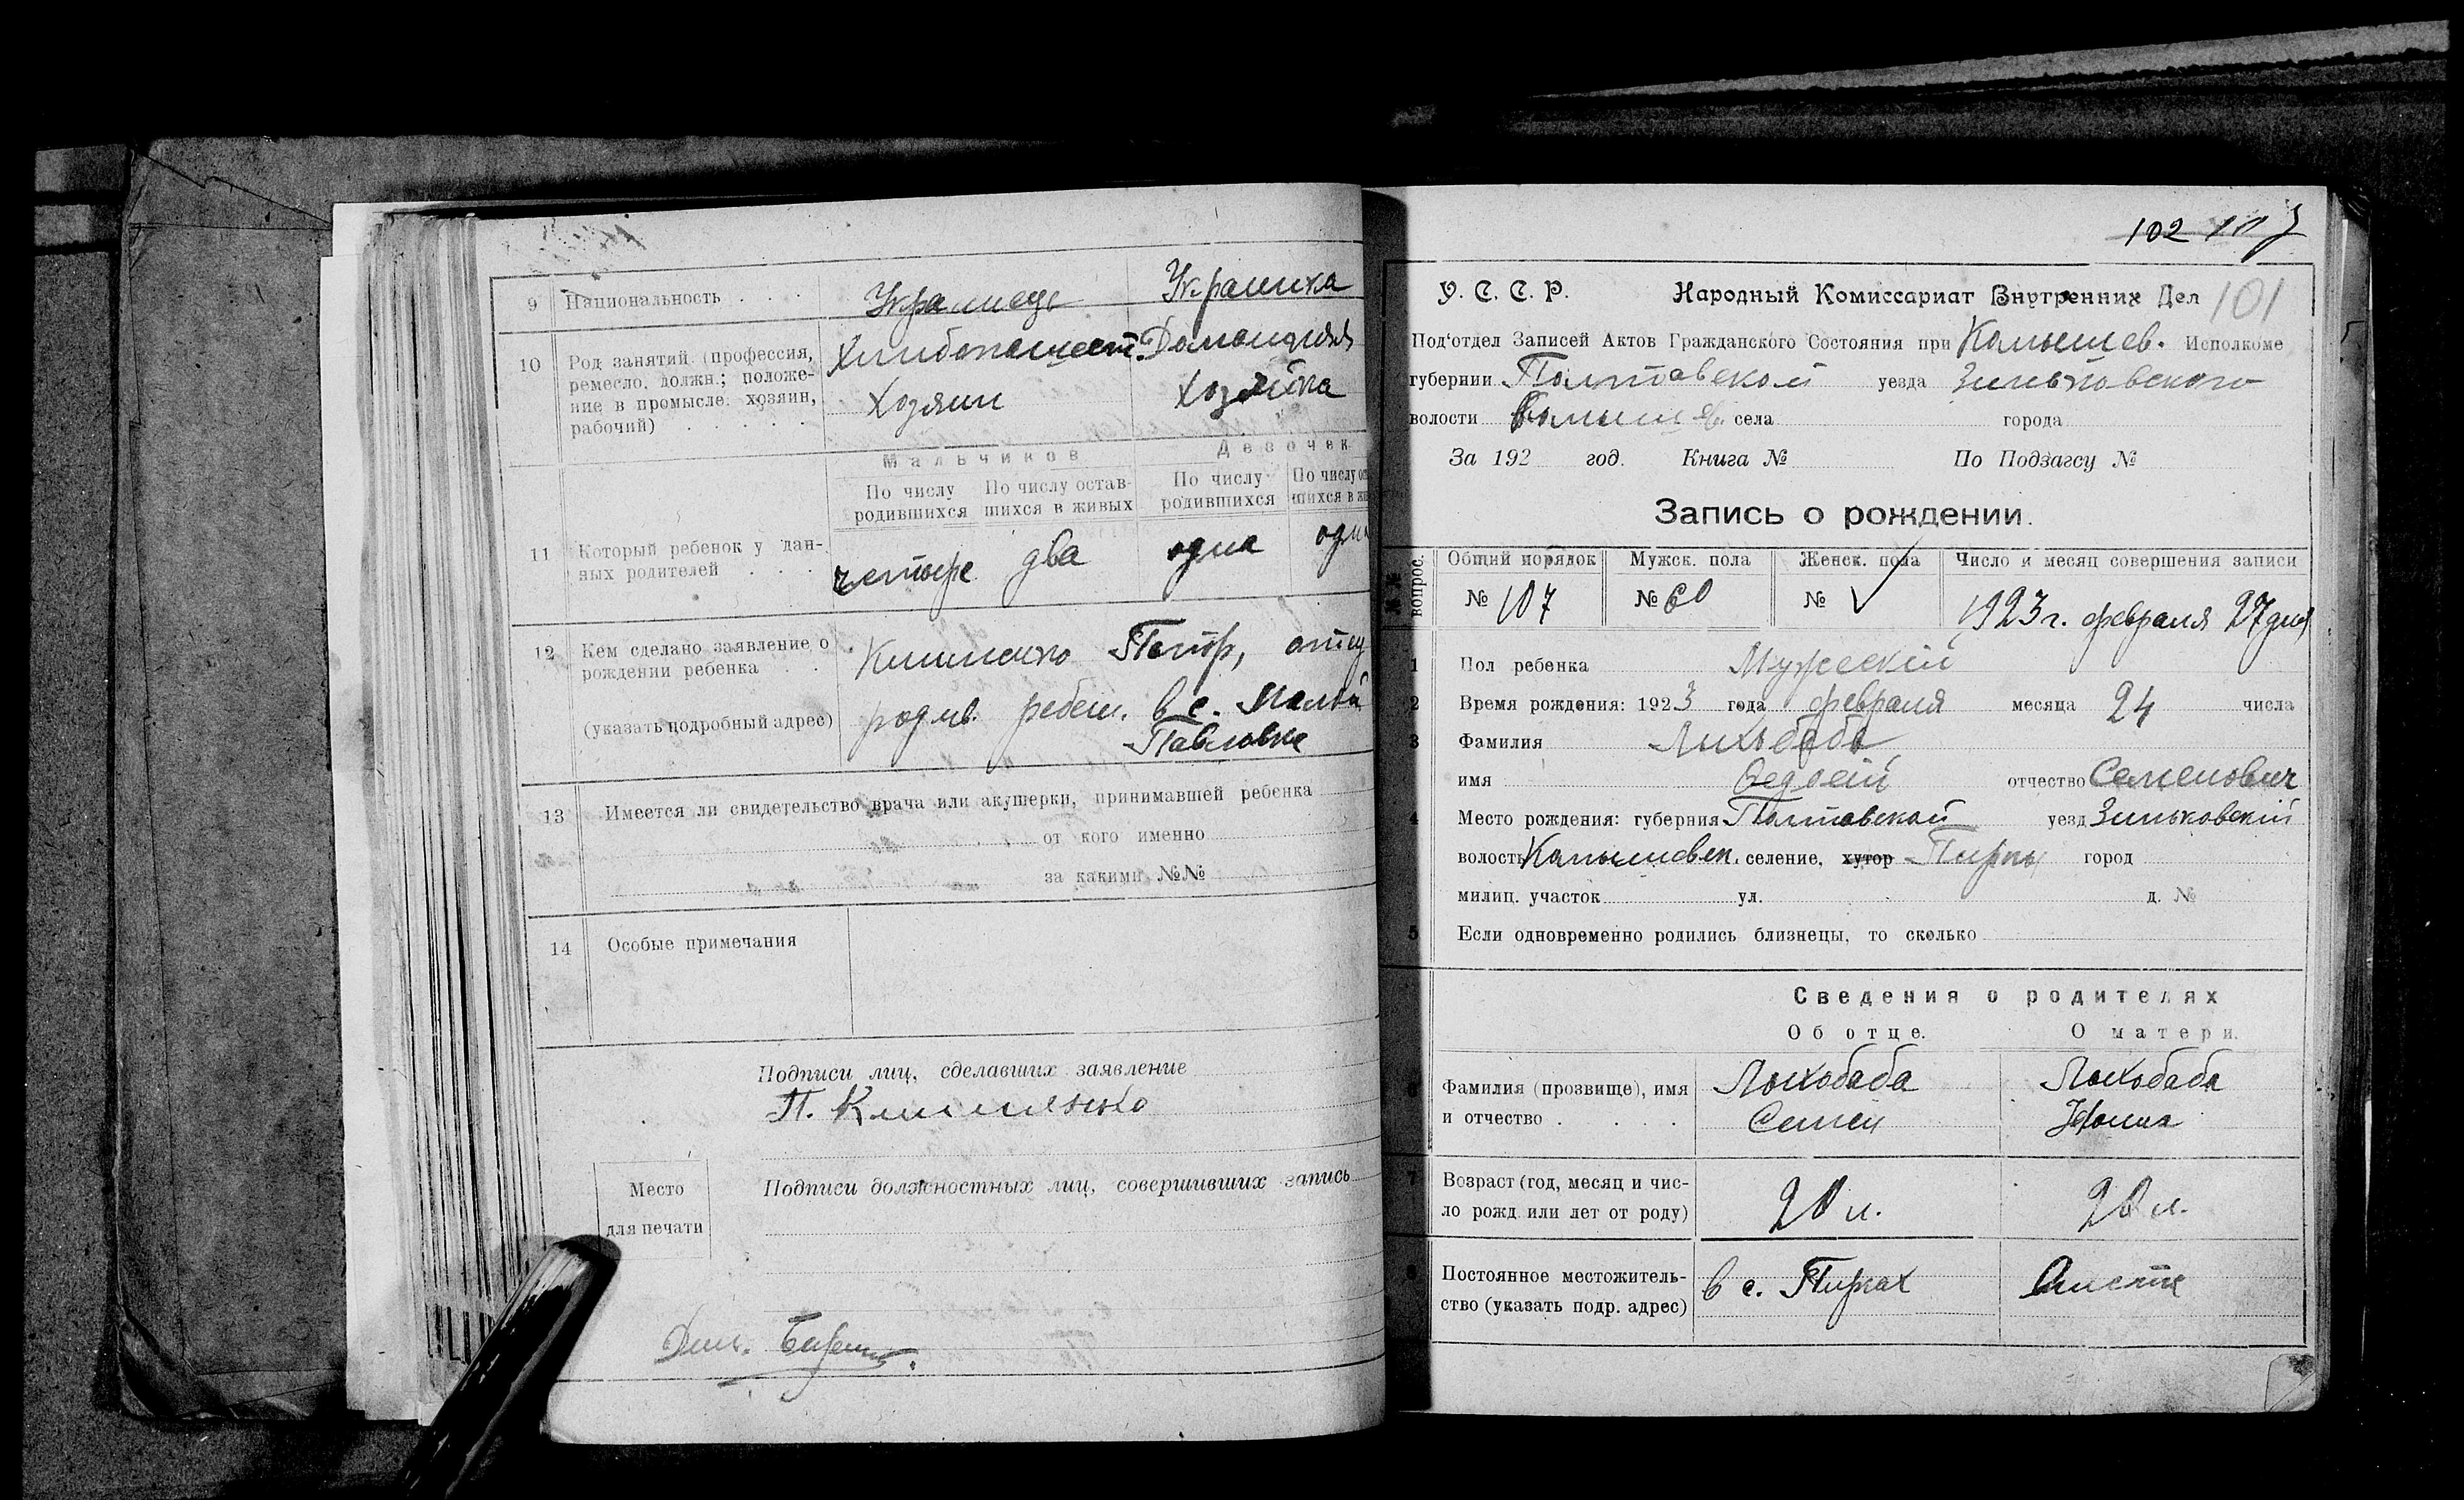 9 Национальность . . . Украинец Украинка
10 Род занятий (профессия,
ремесло, должн.; положе-
ние в промысле: хозяин,
рабочий) . . . . .
Хлибопашест. Домашняя
Хозяин Хозяйка
Мальчиков Девочек
По числу родившихся По числу остав-шихся в живых По числу родившихся По числу ос шихся в жи
11 Который ребенок у дан-
ных родителей . . .
четыре два одна одна
12 Кем сделано заявление о
рождении ребенка . .
(указать подробный адрес)
Петр, отец
родив. ребен. в с. Малой
Павловке
13 Имеется ли свидетельство врача или акушерки, принимавшей ребенка
от кого именно
за какими №№
14 Особые примечания
Подписи лиц, сделавших заявление
П.
Место
для печати
Подписи должностных лиц, совершивших запись
102
101
У. С. С. Р. Народный Комиссариат Внутренних Дел
Под'отдел Записей Актов Гражданского Состояния при Камышев. Исполкоме
губернии Полтавской уезда Зиньковского
волости Камышев. села города
За 192 год. Книга № По Подзагсу №
Запись о рождении.
№№ вопрос. Общий порядок Мужск. пола Женск. пола Число и месяц совершения записи
№ 107 № 60 № 1923 г. февраля 27 дня
1 Пол ребенка Мужеский
2 Время рождения: 1923 года февраля месяца 24 числа
3 Фамилия Лихобаба
имя Федосий отчество Семенович
4 Место рождения: губерния Полтавской уезд Зиньковский
волость Камышовск. селение, хутор Пирки город
милиц. участок ул. д. №
5 Если одновременно родились близнецы, то сколько
Сведения о родителях
Об отце. О матери.
6 Фамилия (прозвище), имя
и отчество . . . .
Лихобаба Лихобаба
Семен
7 Возраст (год, месяц и чис-
ло рожд или лет от роду)
20 л. 20 л.
8 Постоянное местожитель-
ство (указать подр. адрес)
в с. Пирках